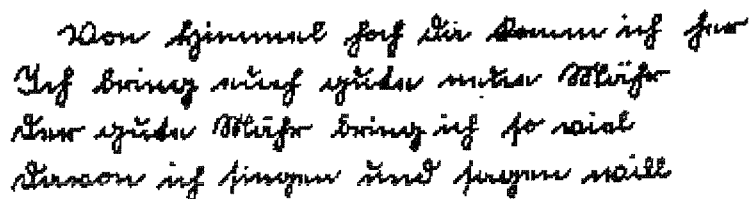 Von Himmel hoch da komm ich her
Ich bring euch gute neue Mähr
Der gute Mähr bring ich so viel
Davon ich singen und sagen will